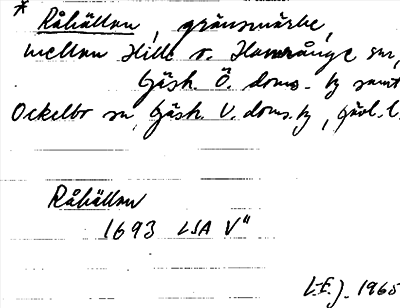 * Råhällan, gränsmärke,
mellan Hille o. Hamrånge snr,
Gästr. Ö. doms. hg samt
Ockelbo sn, Gästr. V. doms. hg, Gävl. l.
Råhällan
1693 LSA V"
L.E.J. 1965